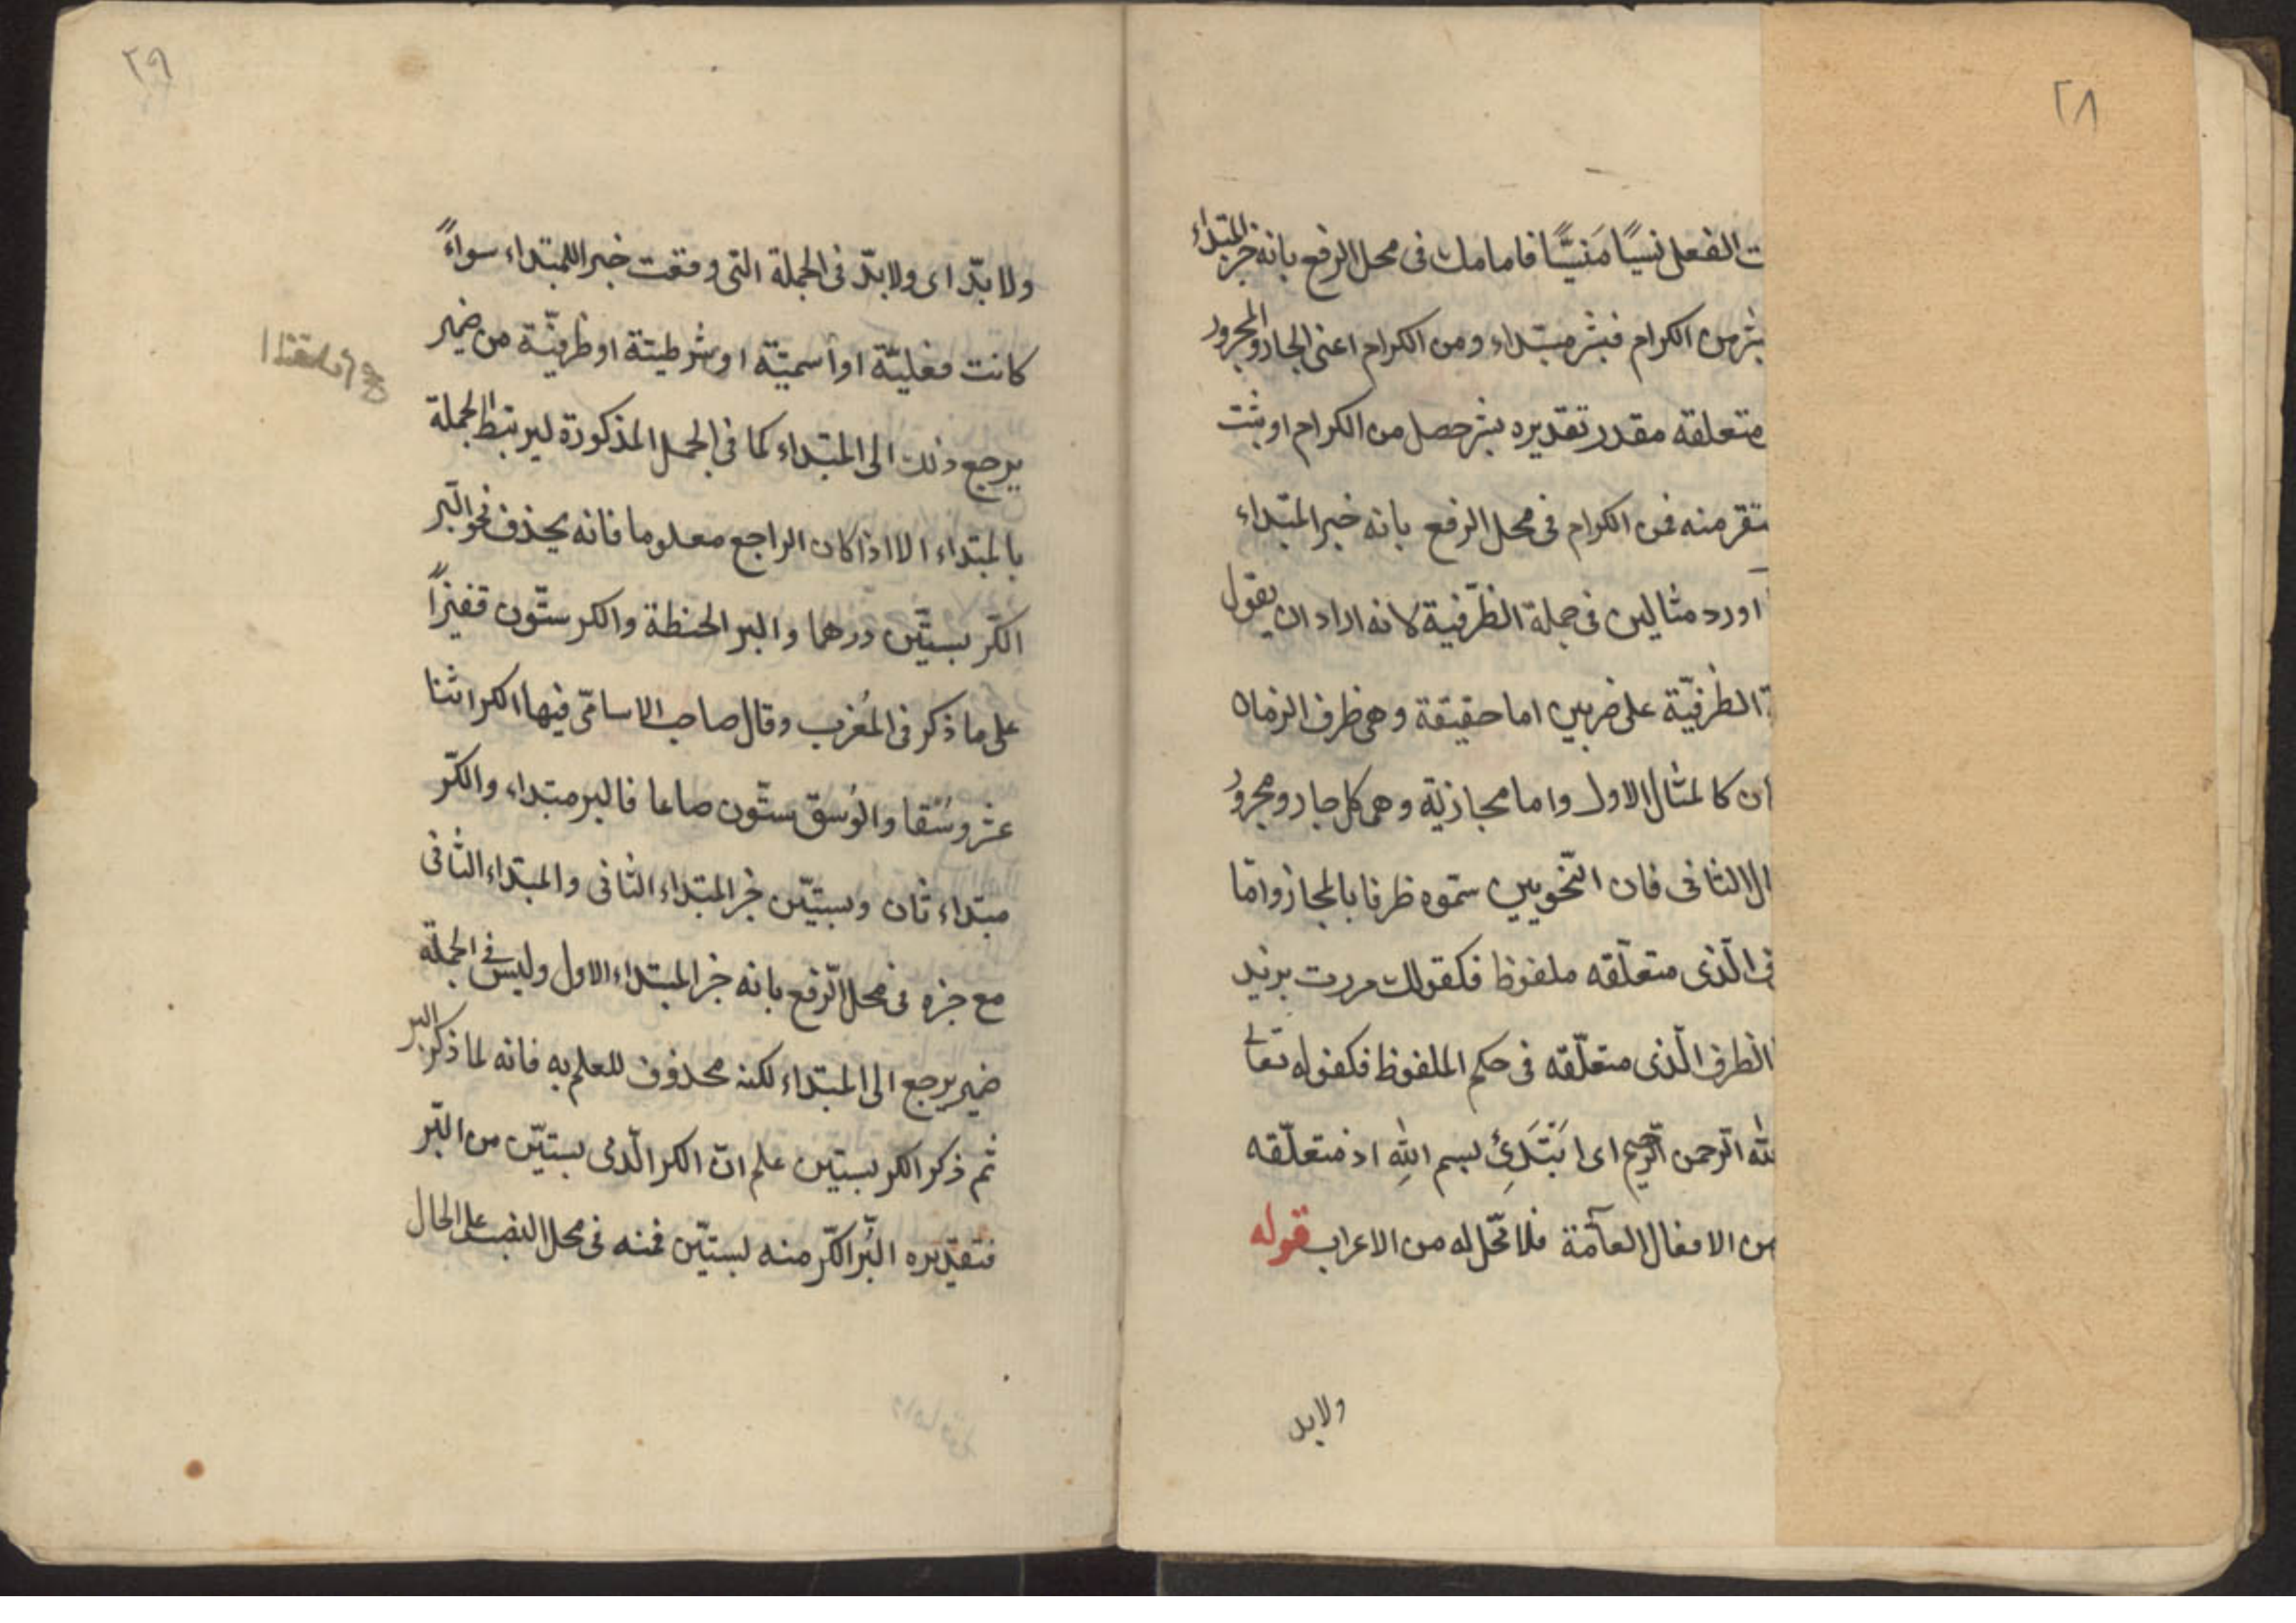 ٢٨
ت الفعل نسيًا مَنيًّا فامامك فى محل الرفع بانه خبر المبتداء
بشر من الكرام فبشر مبتداء ومن الكرام اعنى الجار والمجرور
متعلقه مقدر تقديره بشر حصل من الكرام او يثبت
ستقر منه فمن الكرام فى محل الرفع بانه خبر المبتداء
اورد مثالين فى جملة الظرّفية لانه اراد ان يقول
الظرفيّة على ضربين اما حقيقة وهى ظرف الزمان
ان كالمثال الاول واما مجازية وهى كل جار ومجرور
ال الثانى فان النّحويين سمّوه ظرفا بالمجاز وامّا
ف الّذى متعلّقه ملفوظ فكقولك مررت بزيد
الظرف الّذى متعلّقه فى حكم الملفوظ فكقوله تعالى
لله الرّحمن الرّحيم اى اَبْتَدِئُ بسم اللهِ اذ متعلّقه
من الافعال العآمّة فلا محّل له من الاعراب قوله
ولابد
٢٩
ولا بدّ اى ولا بدّ فى الجملة التى وقعت خبرا للمبتداء سواءً
كانت فعليّة او أسميّة او شرطيّة او ظرفيّة من ضمير
يرجع ذلك الى المبتداء كما فى الجمل المذكورة ليرتبط الجملة
بالمبتداء الا اذا كان الراجع معلوما فانه يحذف نحو البّر
الكّر بستّين درهما والبر الحنطة والكر ستّون قفيزاً
على ما ذكر فى المُغرب وقال صاحب الاسامىّ فيها الكر اثنا
عشر وسْقا والوُسقّ ستّون صاعا فالبر مبتداء والكّر
مبتداء ثان وبستيّن خبر المبتداء الثانى والمبتداء الثانى
مع خبره فى محل الرّفع بانه خبر المبتداء الاول وليس فى الجملة
ضمير يرجع الى المبتداء لكنه محذوف للعلم به فانه لما ذكر البر
ثم ذكر الكر بستين علم انّ الكر الّذى بستيّن من البّر
فتقديره البُّر الكّر منه بستيّن فمنه فى محل النصب على الحال